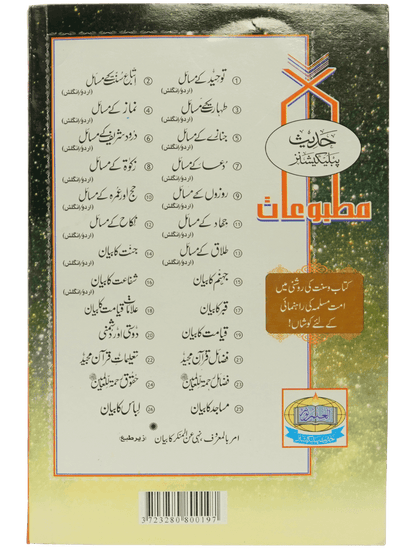 حدیث
پبلیکیشنز
مطبوعات
① توحید کے مسائل (اردو/انگلش)
② اتباع سنت کے مسائل (اردو/انگلش)
③ طہارت کے مسائل (اردو/انگلش)
④ نماز کے مسائل (اردو/انگلش)
⑤ جنازے کے مسائل (اردو/انگلش)
⑥ درود شریف کے مسائل (اردو/انگلش)
⑦ دعا کے مسائل (اردو/انگلش)
⑧ زکوٰۃ کے مسائل (اردو/انگلش)
⑨ روزوں کے مسائل (اردو/انگلش)
⑩ حج اور عمرہ کے مسائل (اردو/انگلش)
⑪ جہاد کے مسائل
⑫ نکاح کے مسائل (اردو/انگلش)
⑬ طلاق کے مسائل (اردو/انگلش)
⑭ جنت کا بیان (اردو/انگلش)
⑮ جہنم کا بیان (اردو/انگلش)
⑯ شفاعت کا بیان (اردو/انگلش)
⑰ قبر کا بیان
⑱ علامات قیامت کا بیان
⑲ قیامت کا بیان
⑳ دوستی اور دشمنی
㉑ فضائل قرآن مجید
㉒ تعلیمات قرآن مجید
㉓ فضائل رحمۃ للعالمین
㉔ حقوق رحمۃ للعالمین
㉕ مساجد کا بیان
㉖ لباس کا بیان
امر بالمعروف نہی عن المنکر کا بیان (زیر طبع)
کتاب و سنت کی روشنی میں
امت مسلمہ کی راہنمائی
کے لئے کوشاں!
3723280800197